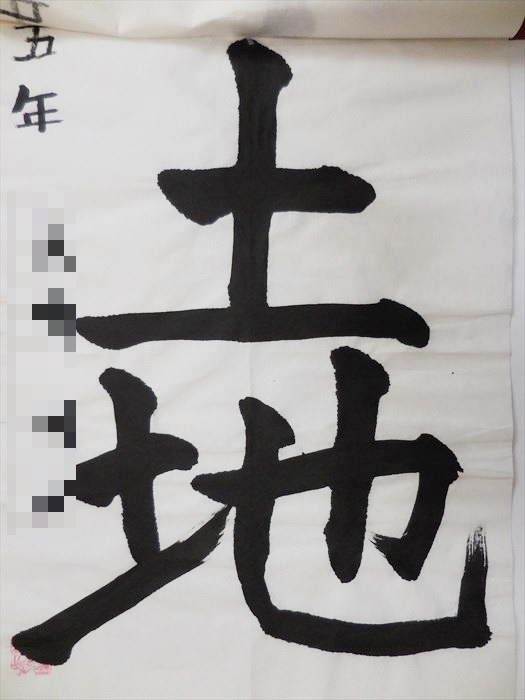 土地
五年